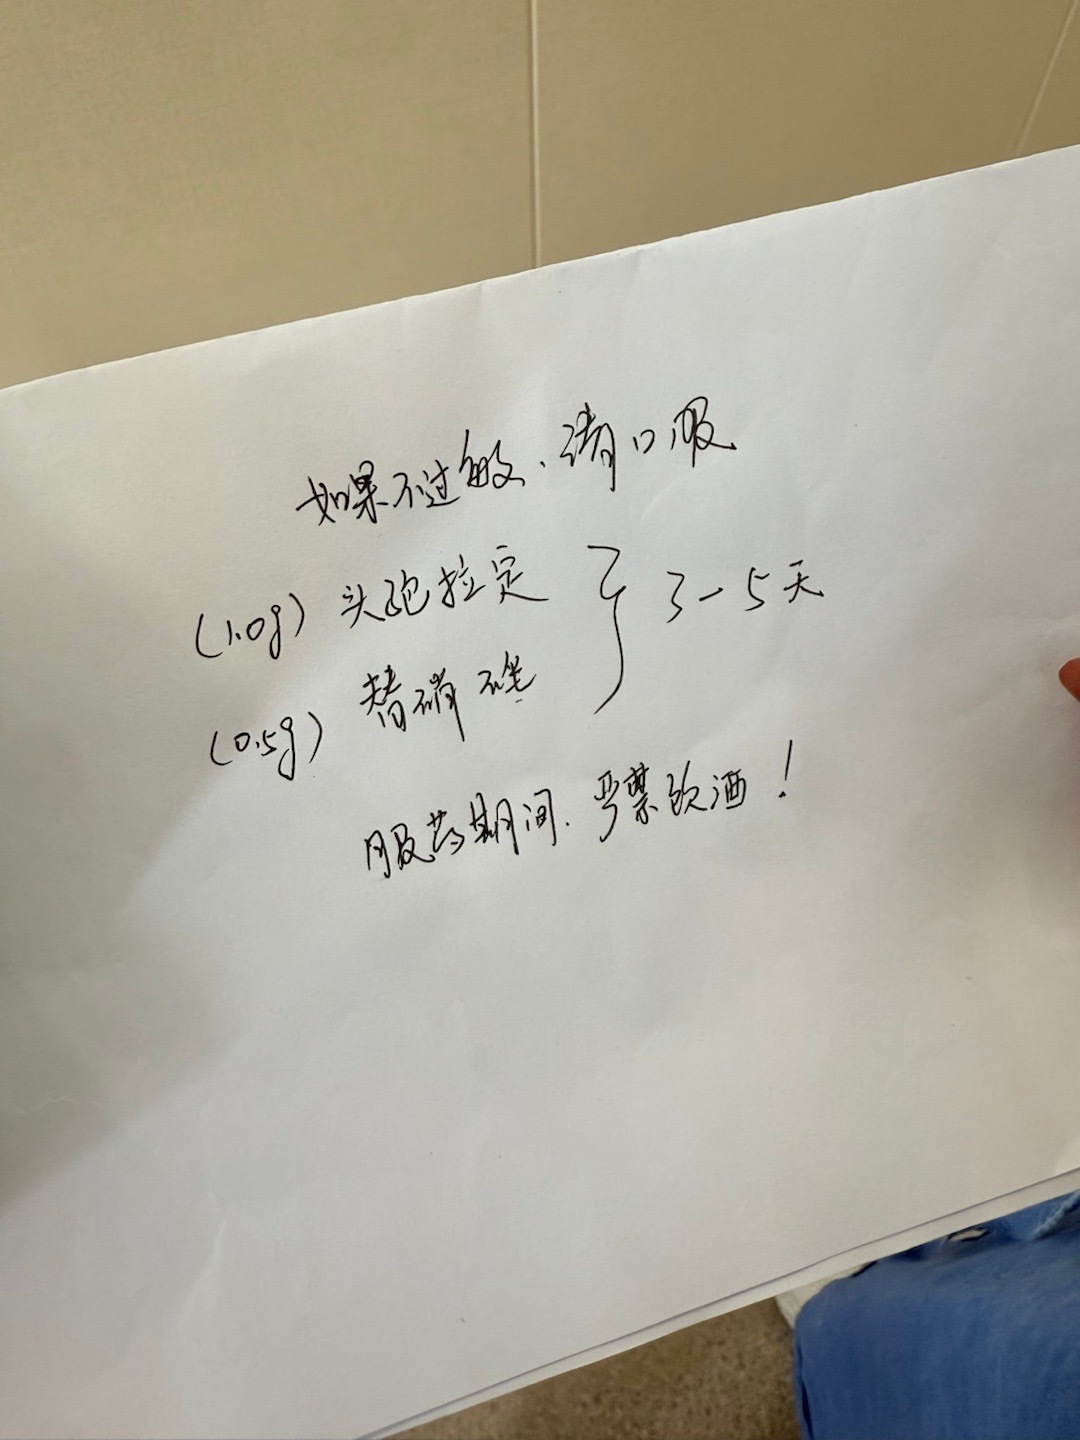 如果不过敏、请口服
(1.0g) 头孢拉定
(0.5g) 替硝唑
} 3-5天
服药期间、严禁饮酒！